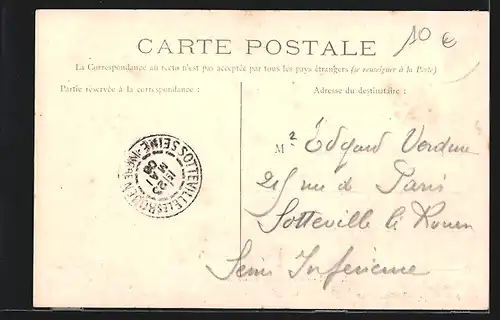 CARTE POSTALE
10 €
La Correspondance au recto n'est pas acceptée par tous les pays étrangers (se renseigner à la Poste)
Partie réservée à la correspondance :
Adresse du destinataire :
Mr Edgard Verdure
215 rue de Paris
Sotteville le Rouen
Seine Inférieure
SOTTEVILLE-LES-ROUEN
SEINE-INFRE